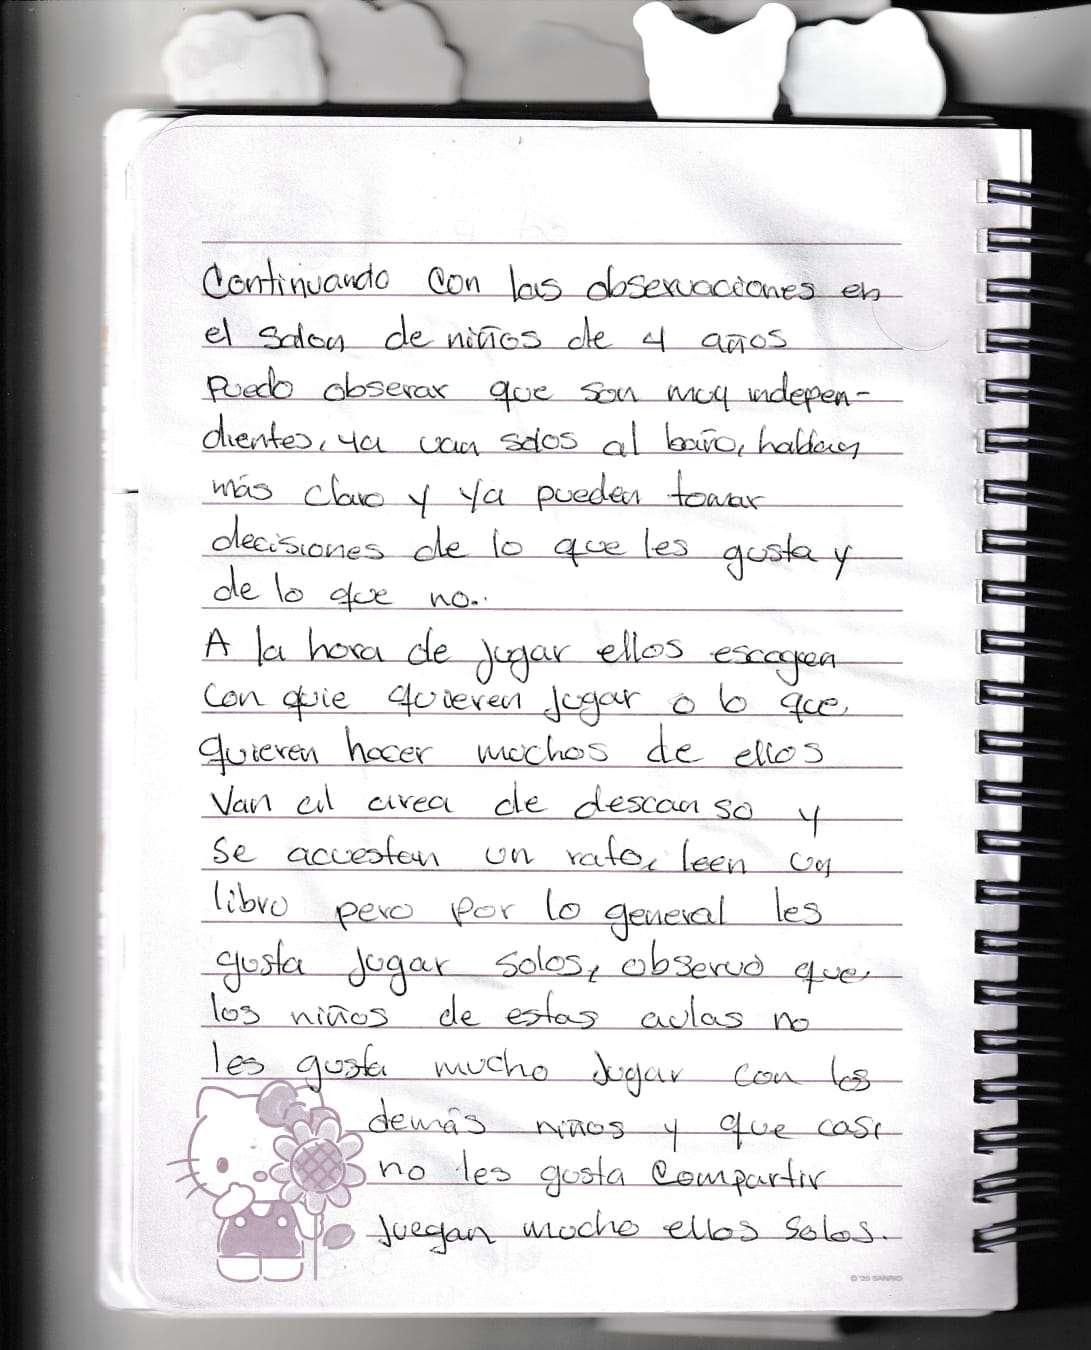 Continuando con las observaciones en
el salon de niños de 4 años
Puedo obserar que son muy indepen-
dientes, ya van solos al baño, hablan
más claro y ya pueden tomar
decisiones de lo que les gusta y
de lo que no..
A la hora de jugar ellos escogen
con quie quieren jugar o lo que
quieren hacer muchos de ellos
Van al area de descanso y
se acuestan un rato, leen un
libro pero por lo general les
gusta jugar solos, observo que
los niños de estas aulas no
les gusta mucho jugar con los
demás niños y que casi
no les gusta Compartir
juegan mucho ellos solos.
© '20 SANRIO